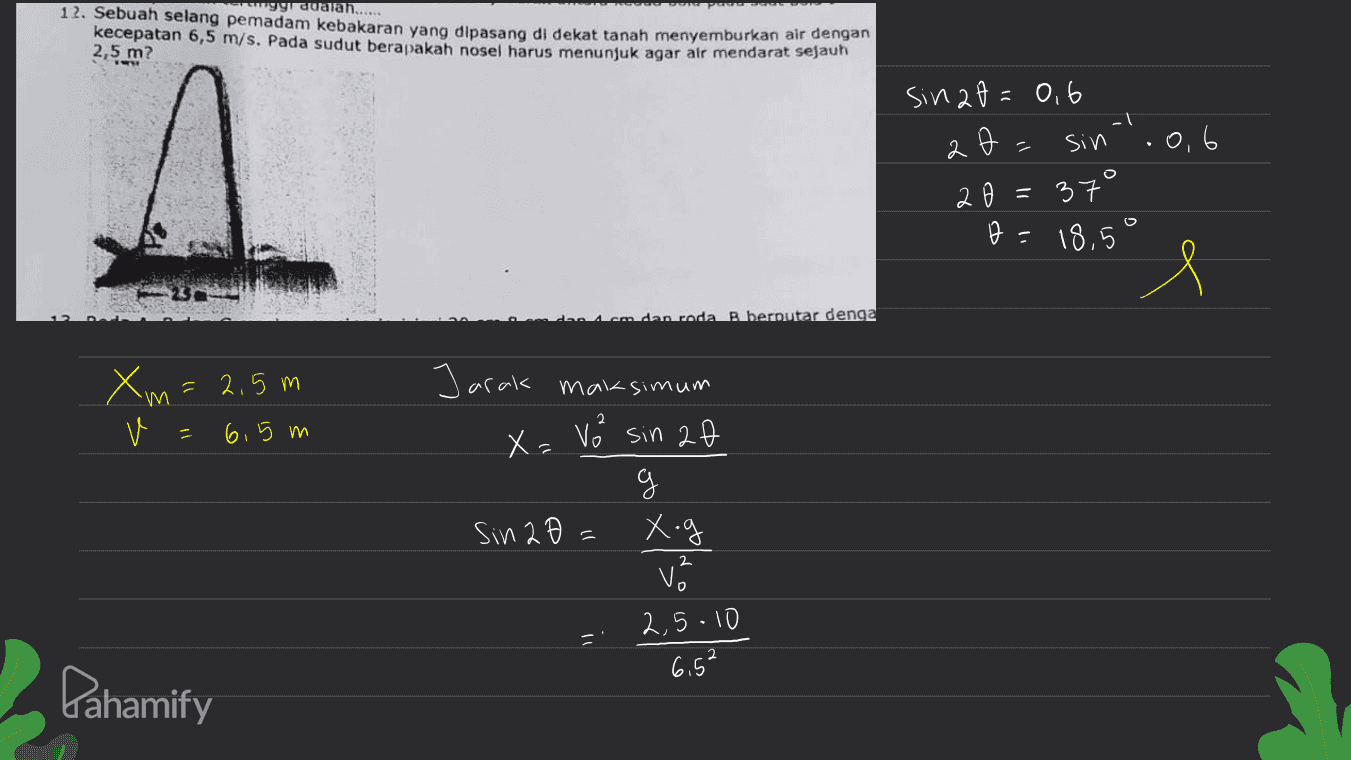 12. Sebuah selang pemadam kebakaran yang dipasang di dekat tanah menyemburkan air dengan
kecepatan 6,5 m/s. Pada sudut berapakah nosel harus menunjuk agar air mendarat sejauh
2,5 m?
dan 4 cm dan roda B berputar denga
sin 2θ = 0,6
2θ = sin⁻¹ . 0,6
2θ = 37°
θ = 18,5°
Xm = 2,5 m
v = 6,5 m
Jarak maksimum
X = V₀² sin 2θ
g
Sin 2θ = X.g
V₀²
= 2,5 . 10
6,5²
Pahamify